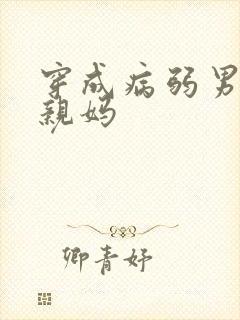 穿成病弱男
親妈
卿青妤